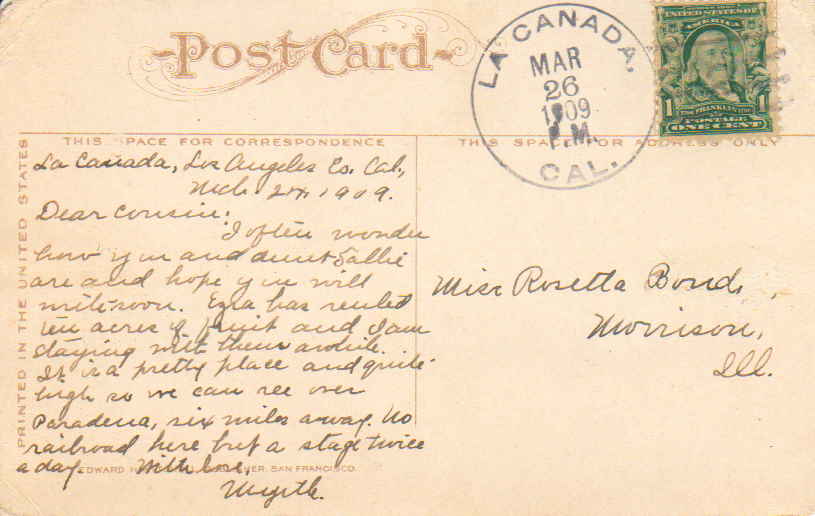 Post Card
LA CANADA,
MAR
26
1909
P.M.
CAL.
UNITED STATES OF
AMERICA
FRANKLIN
1 1
POSTAGE
ONE CENT
THIS SPACE FOR CORRESPONDENCE
THIS SPACE FOR ADDRESS ONLY
PRINTED IN THE UNITED STATES
La Canada, Los Angeles Co. Cal.,
Mch. 24, 1909.
Dear Cousin:
I often wonder
how you and Aunt Sallie
are and hope you will
write soon. Ezra has rented
ten acres of fruit and I am
staying with them awhile.
It is a pretty place and quite
high so we can see over
Pasadena, six miles away. No
railroad here but a stage twice
a day. With love,
Myrtle.
EDWARD H. SAN FRANCISCO.
Miss Rosetta Bond,
Morrison,
Ill.